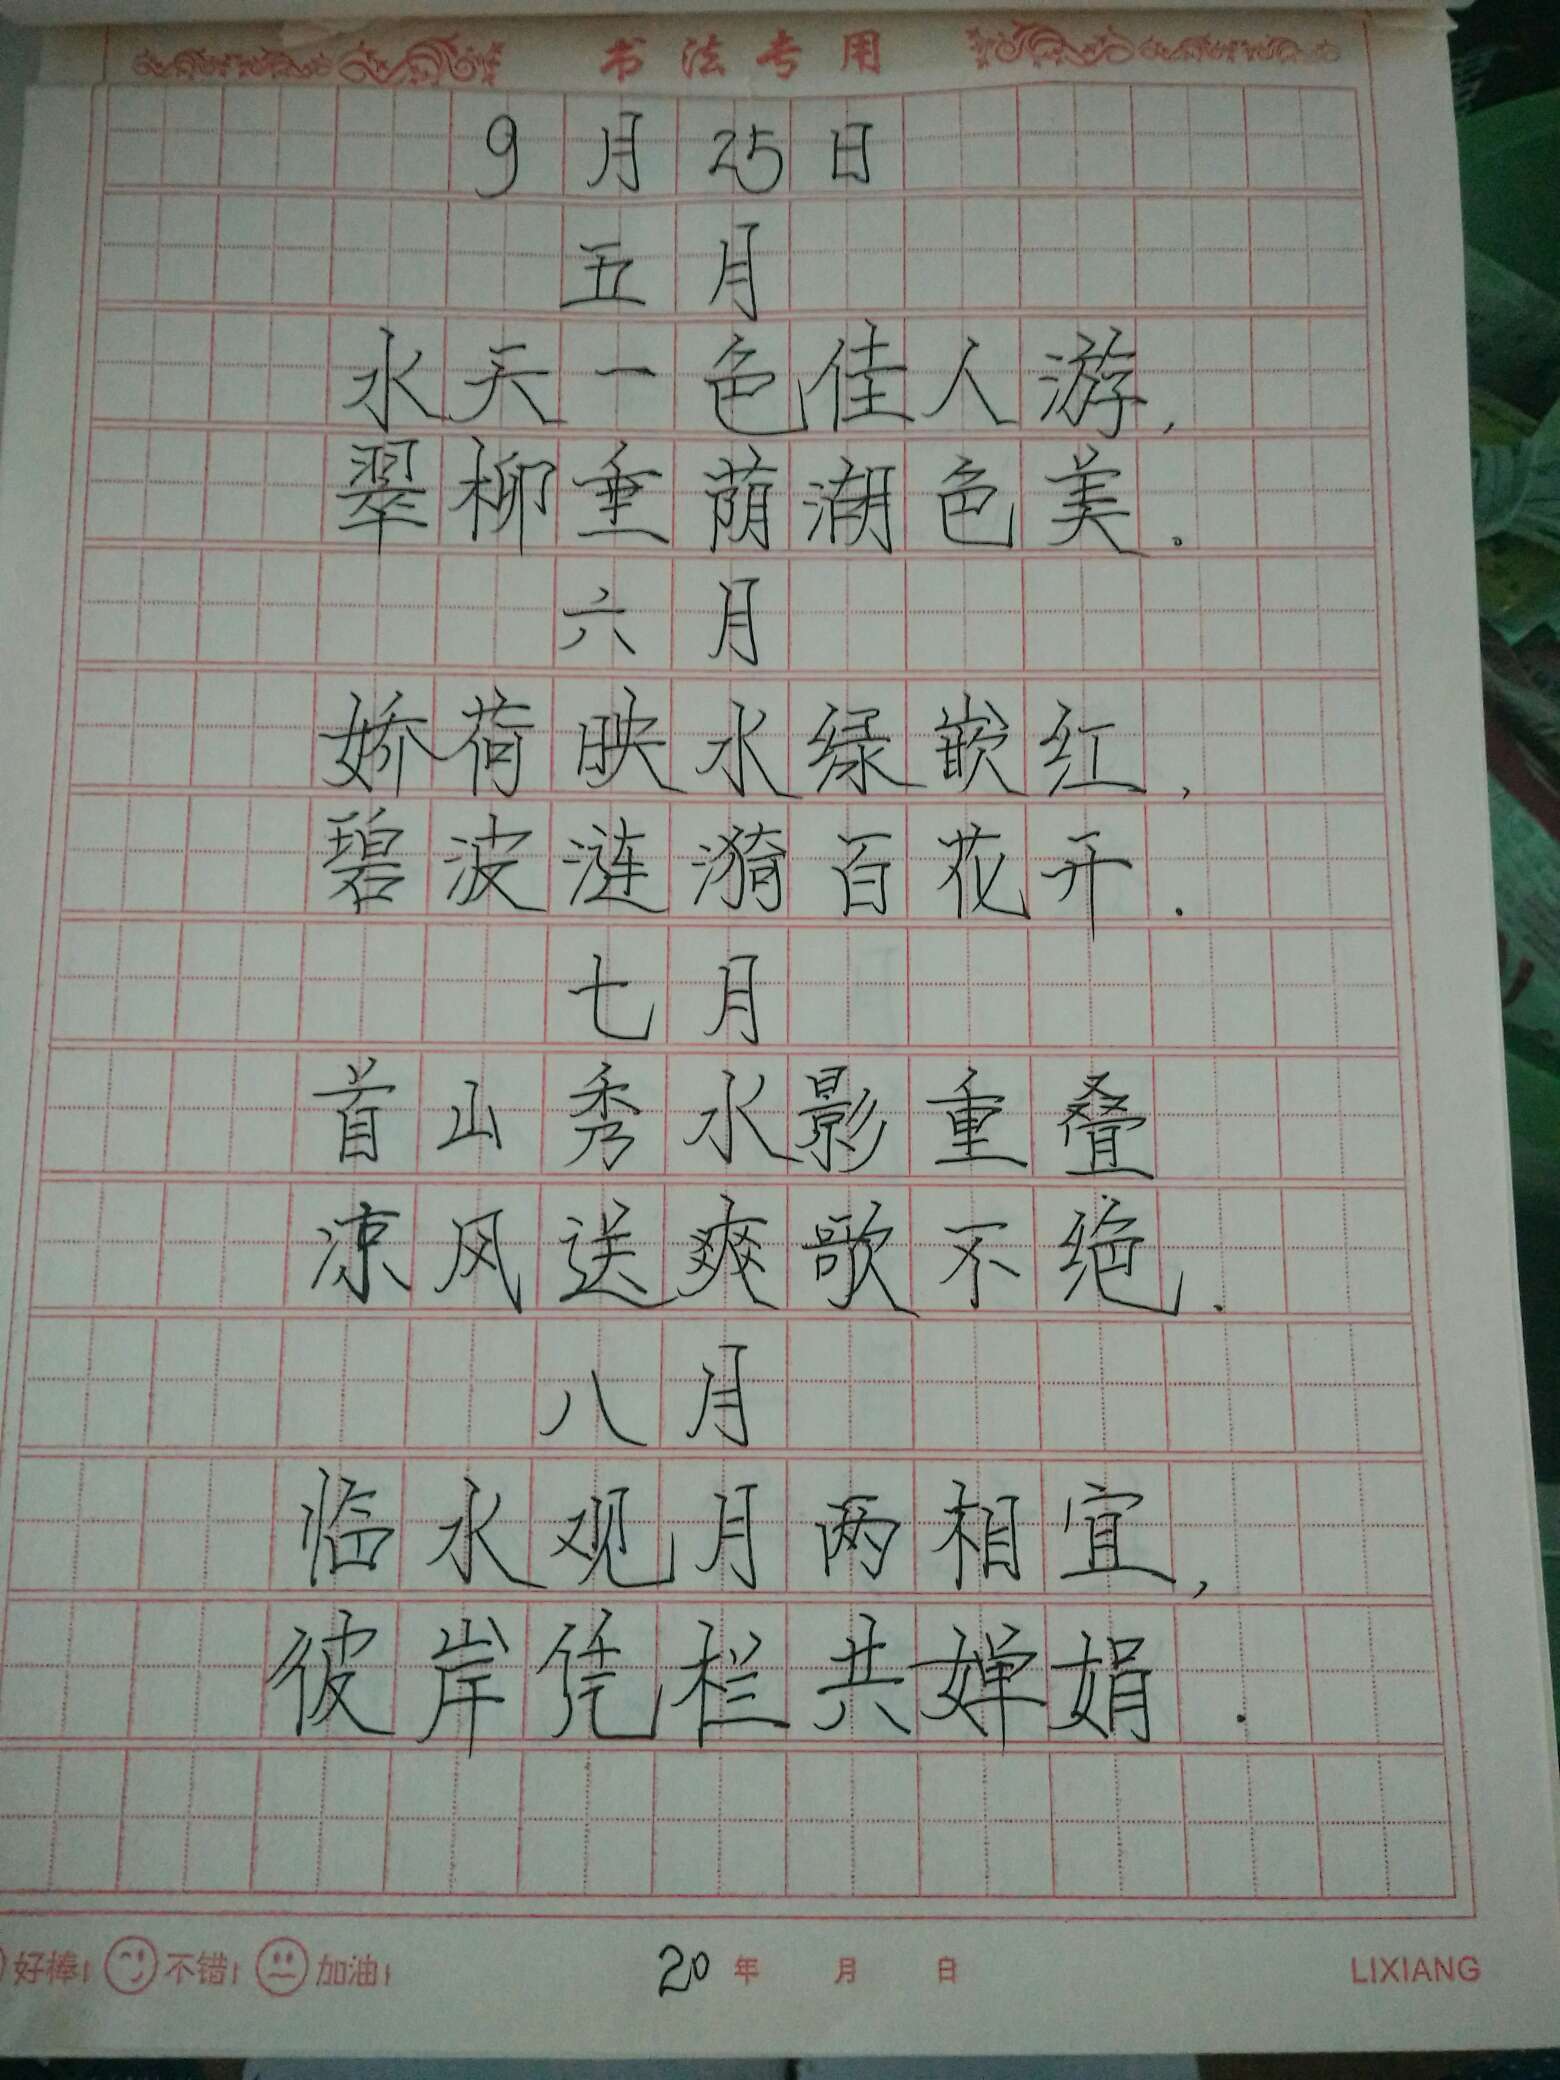 书法专用
9月25日
五月
水天一色佳人游,
翠柳垂荫湖色美.
六月
娇荷映水绿嵌红,
碧波涟漪百花开.
七月
首山秀水影重叠
凉风送爽歌不绝.
八月
临水观月两相宜,
彼岸凭栏共婵娟.
好棒! 不错! 加油! 20年 月 日 LIXIANG